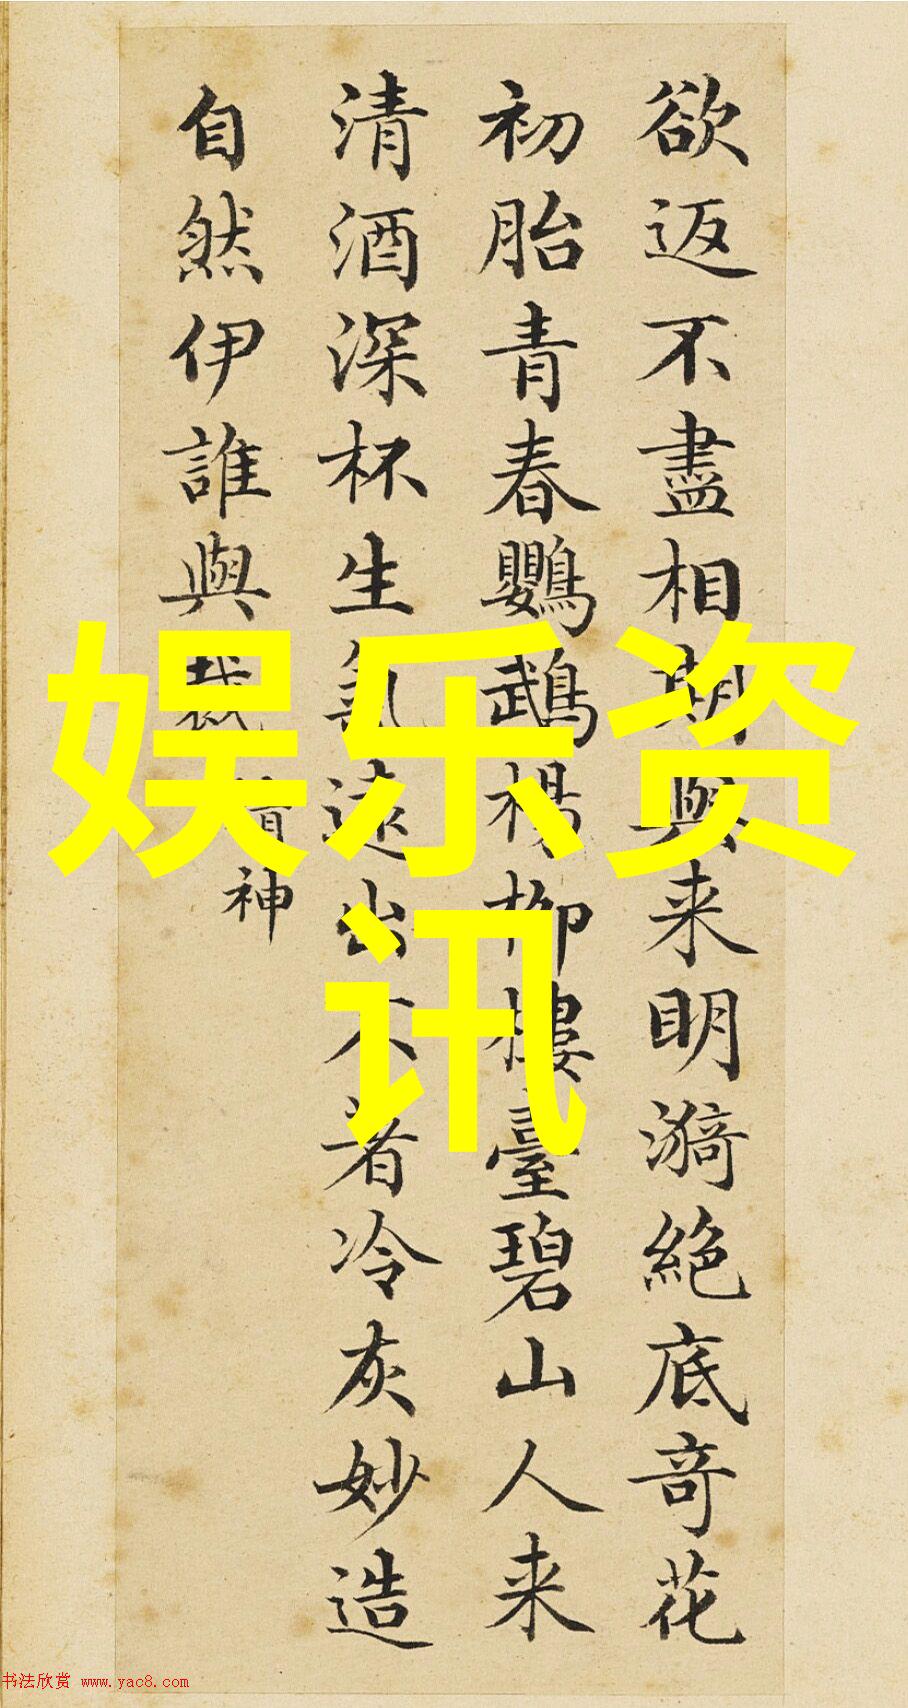 欲返不盡相期與来明漪絶底奇花
初胎青春鸚鵡楊柳樓臺碧山人来
清酒深杯生氣遠出不着冷灰妙造
自然伊誰與裁
精神
娱乐资
讯
书法欣赏 www.yac8.com